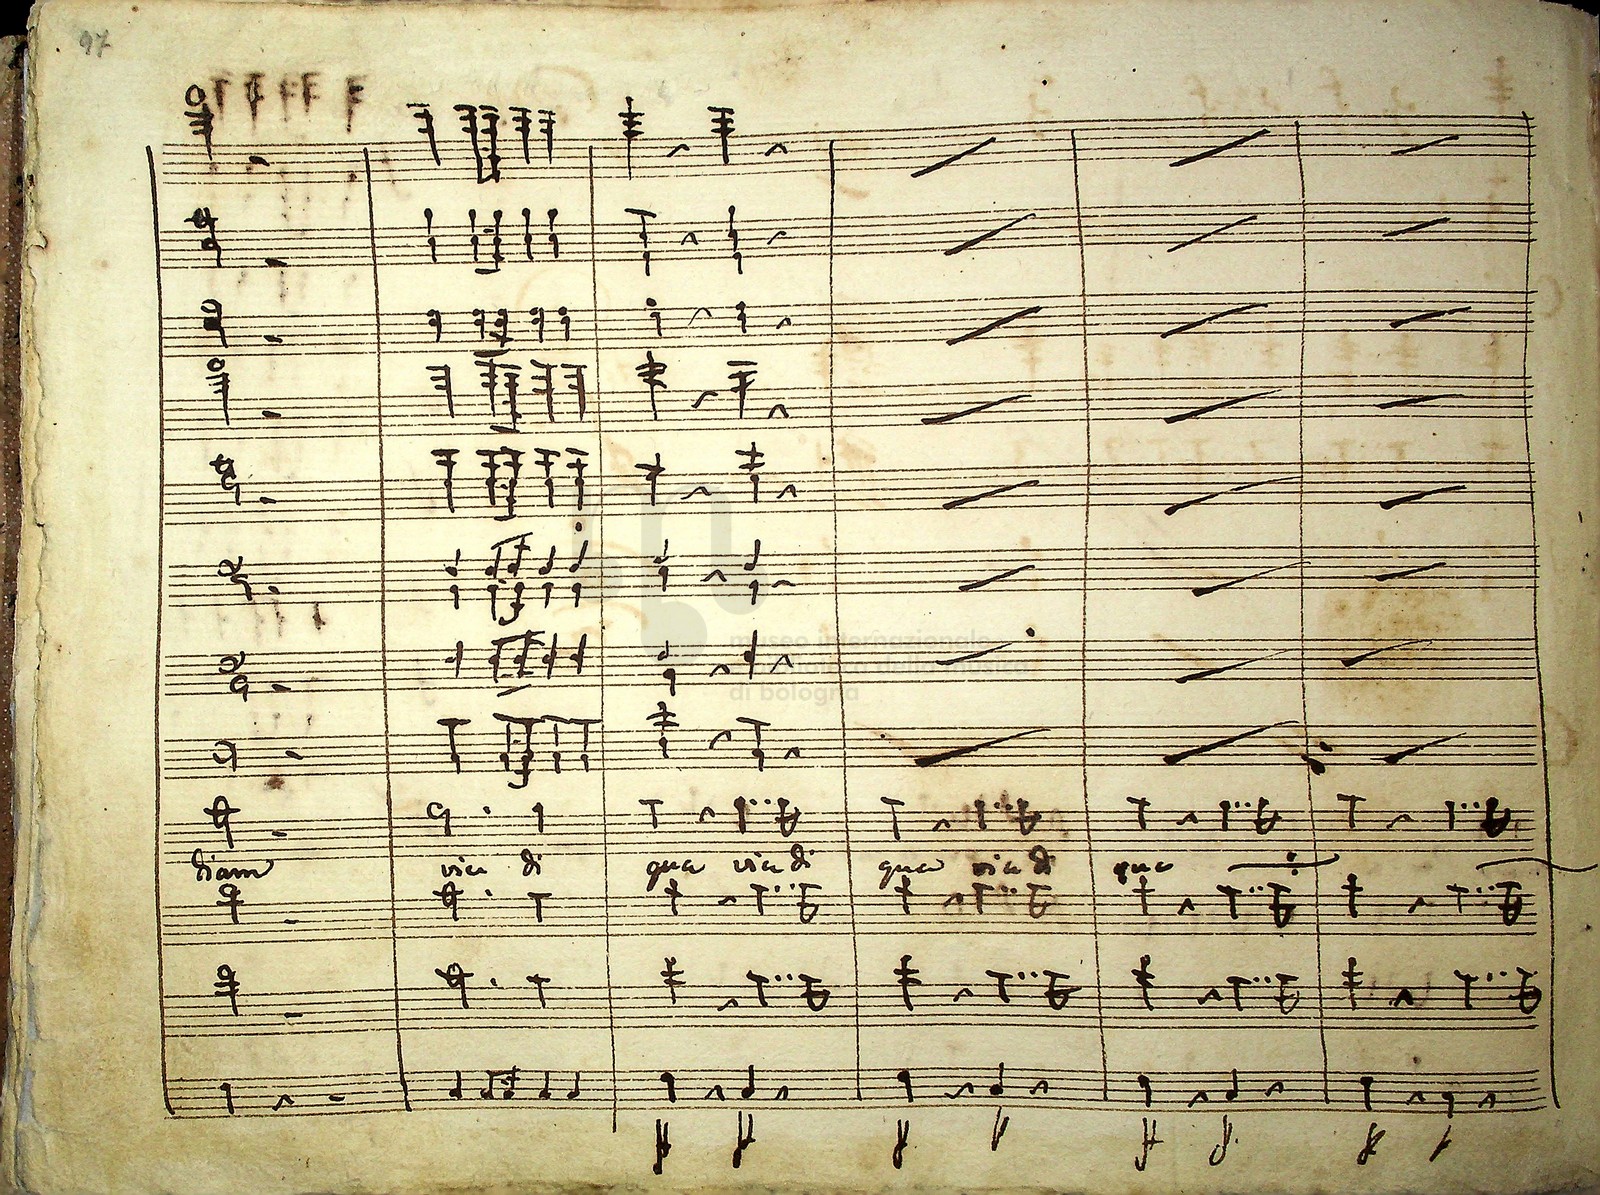 97
museo internazionale
di bologna
diam via di qua via di qua via di qua